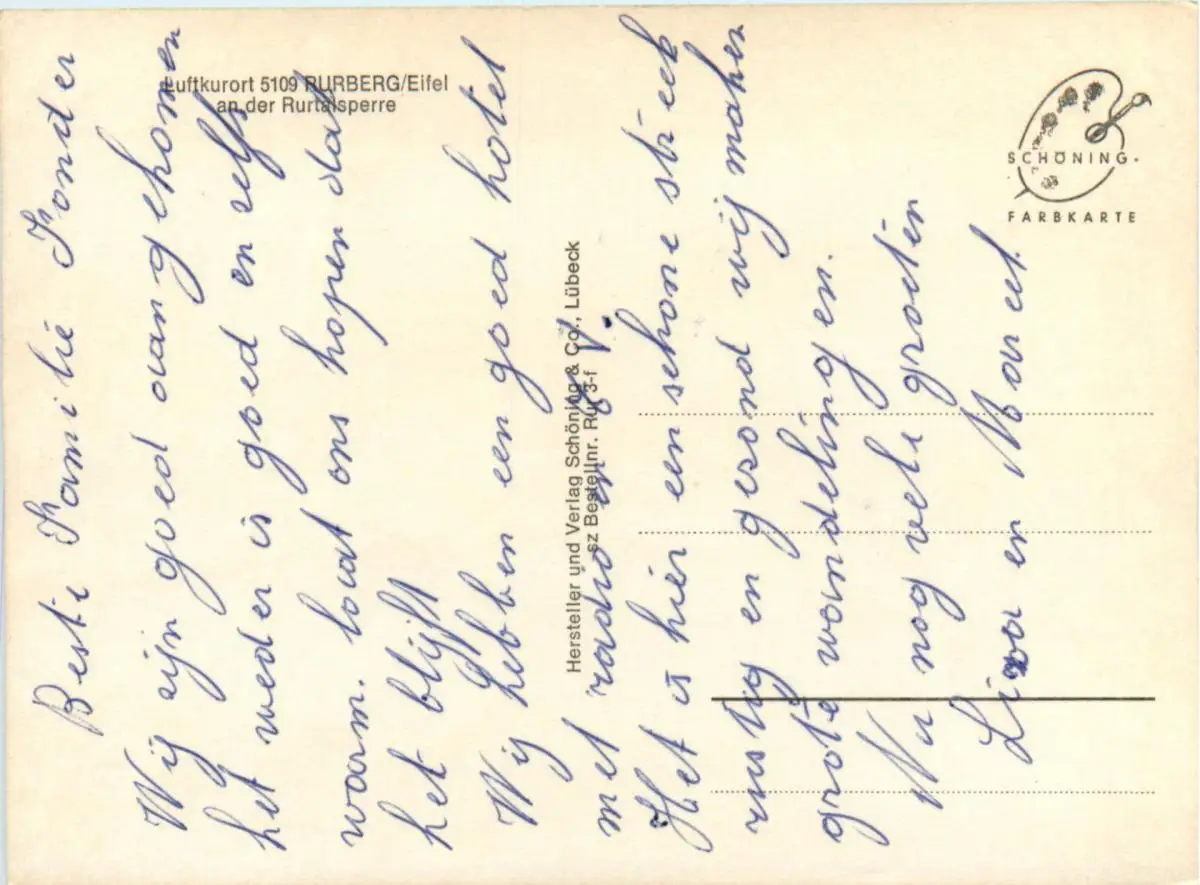 Luftkurort 5109 RURBERG/Eifel
an der Rurtalsperre
SCHÖNING-
FARBKARTE
Hersteller und Verlag Schöning & Co., Lübeck
sz Bestellnr. Rur 3-f
Beste Familie Fonder
Wij zijn goed aangekomen
het weder is goed en zelfs
warm. laat ons hopen dat
het blijft
Wij hebben een goed hotel
met radio en T V.
Het is hier een schone streek
rustig en gezond wij maken
grote wandelingen.
Nu nog vele groeten
Liza en Marcel